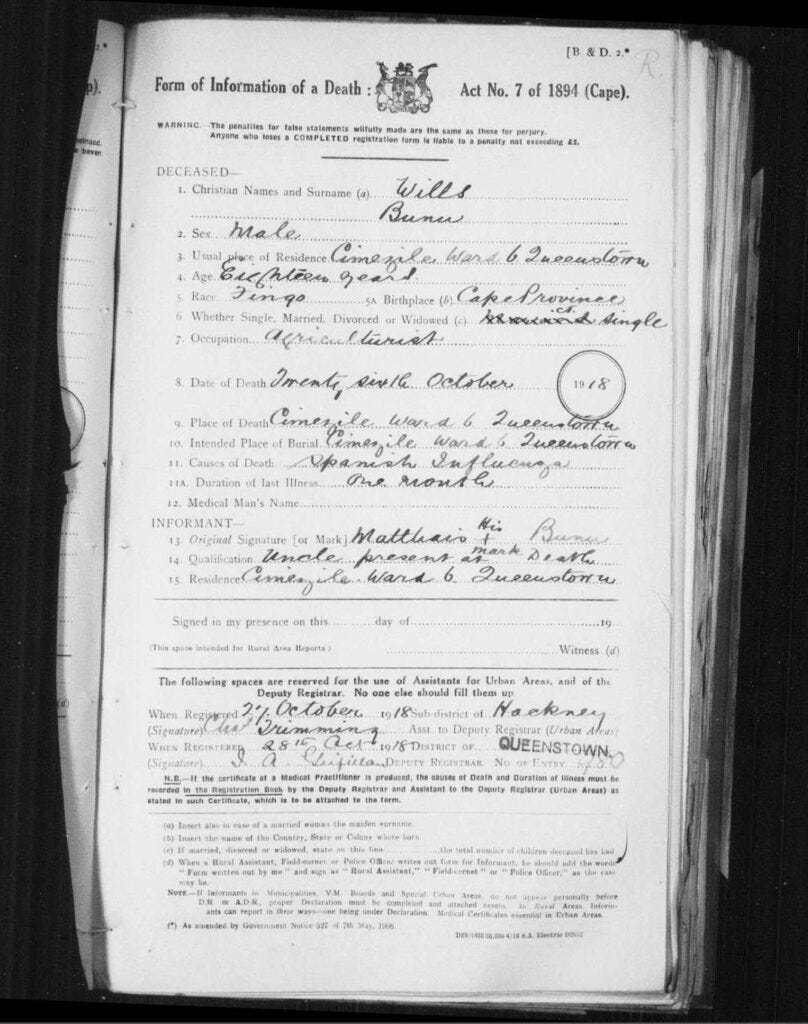 [B & D. 2.*
R.
Form of Information of a Death : Act No. 7 of 1894 (Cape).
WARNING. The penalties for false statements wilfully made are the same as those for perjury.
Anyone who loses a COMPLETED registration form is liable to a penalty not exceeding £2.
DECEASED—
1. Christian Names and Surname (a) Wills
Bunu
2. Sex Male
3. Usual place of Residence Cimezile Ward 6 Queenstown
4. Age Eighteen years
5. Race Fingo 5A Birthplace (b) Cape Province
6 Whether Single, Married, Divorced or Widowed (c) single
7. Occupation Agriculturist
8. Date of Death Twenty sixth October 1918
9. Place of Death Cimezile Ward 6 Queenstown
10. Intended Place of Burial Cimezile Ward 6 Queenstown
11. Causes of Death Spanish Influenza
11A. Duration of last Illness One month
12. Medical Man's Name
INFORMANT—
13. Original Signature [or Mark] Matthais His + mark Bunu
14. Qualification Uncle present at Death
15. Residence Cimezile Ward 6 Queenstown
Signed in my presence on this day of 19
(This space intended for Rural Area Reports) Witness (d)
The following spaces are reserved for the use of Assistants for Urban Areas, and of the
Deputy Registrar. No one else should fill them up
When Registered 27 October 1918 Sub-district of Hackney
(Signature) Chas Trimming Asst. to Deputy Registrar (Urban Areas)
WHEN REGISTERED 28th Oct 1918 DISTRICT OF QUEENSTOWN.
(Signature) DEPUTY REGISTRAR. NO OF ENTRY
N.B.—If the certificate of a Medical Practitioner is produced, the causes of Death and Duration of Illness must be
recorded in the Registration Book by the Deputy Registrar and Assistant to the Deputy Registrar (Urban Areas) as
stated in such Certificate, which is to be attached to the form.
(a) Insert also in case of a married woman the maiden surname.
(b) Insert the name of the Country, State or Colony where born
(c) If married, divorced or widowed, state on this line the total number of children deceased has had
(d) When a Rural Assistant, Field-cornet or Police Officer writes out form for Informant, he should add the words
" Form written out by me " and sign as " Rural Assistant," " Field-cornet " or " Police Officer," as the case
may be.
NOTE.—If Informants in Municipalities, V.M. Boards and Special Urban Areas, do not appear personally before
D.R. or A.D.R., proper Declaration must be completed and attached hereto. In Rural Areas, Inform-
ants can report in three ways—one being under Declaration. Medical Certificates essential in Urban Areas.
(*) As amended by Government Notice 527 of 7th May, 1908.